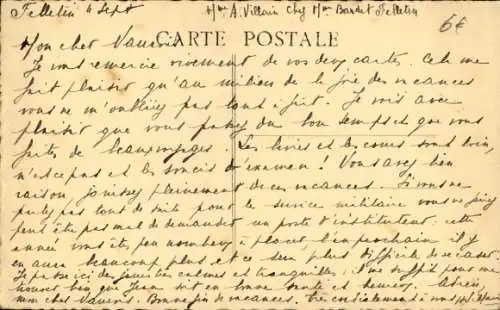 Felletin 4 Sept
Mme A. Villain Chez Mme Bardet Felletin
6€
CARTE POSTALE
Mon cher
Je vous remercie vivement de vos deux cartes. Cela me
fait plaisir qu'au milieu de la joie des vacances
vous ne m'oubliez pas tout à fait. Je vois avec
plaisir que vous passez du bon temps et que vous
faites de beaux voyages. Les livres et les cours sont loin,
n'est ce pas et les soucis d'examen ! Vous avez bien
raison, jouissez pleinement de ces vacances. Si vous ne
partez pas tout de suite pour le service militaire vous ne feriez
peut être pas mal de demander un poste d'instituteur. cette
année vous êtes peu nombreux à placer l'an prochain il y
en aura beaucoup plus et ce sera plus difficile de se caser.
Je passe ici des journées calmes et tranquilles, il me suffit pour me
trouver bien que Jean soit en bonne santé et heureux.
mon cher Bonne fin de vacances. Très cordialement à vous